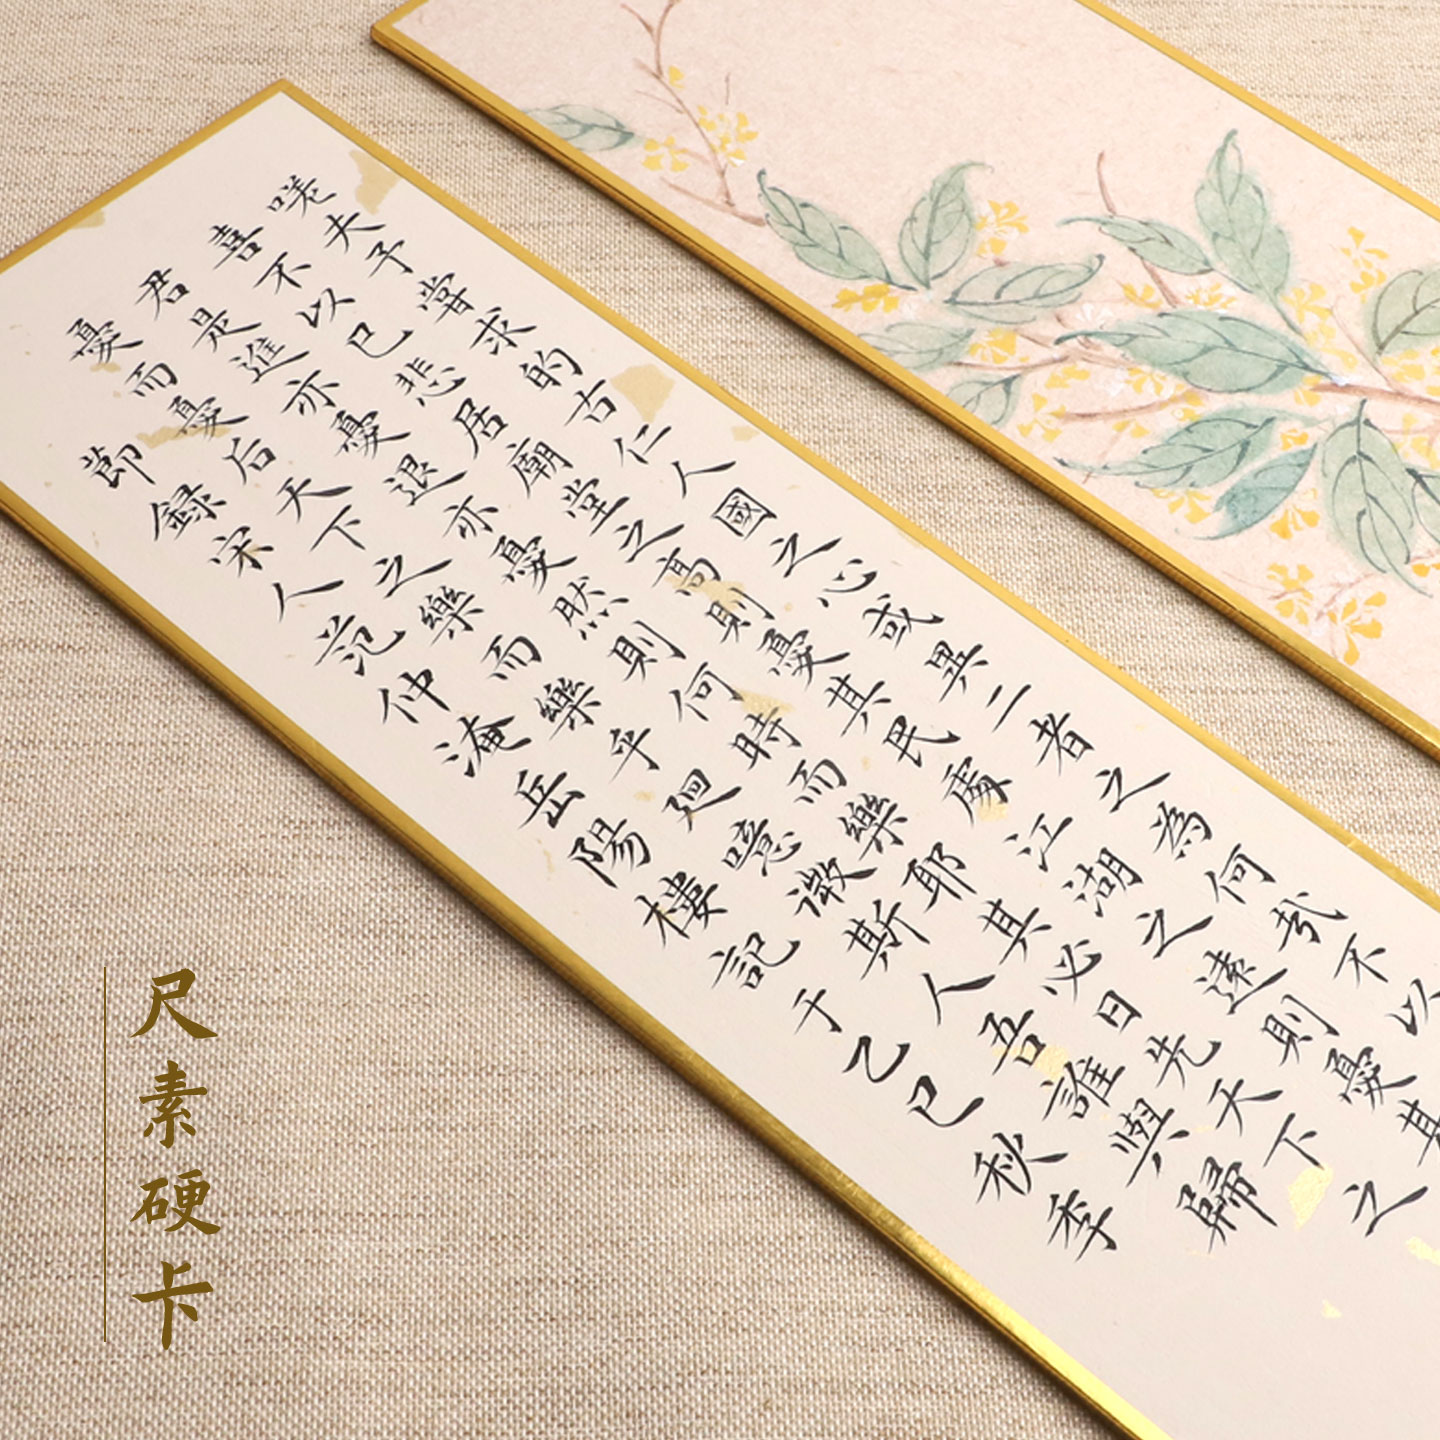 嗟夫予嘗求的古仁人國之心或異二者之為何哉不以
喜不以已悲居廟堂之高則憂其民處江湖之遠則憂其
君是進亦憂退亦憂然則何時而樂耶其必日先天下之
憂而憂后天下之樂而樂乎廻噫微斯人吾誰與歸
節錄宋人范仲淹岳陽樓記于乙巳秋季
尺素硬卡